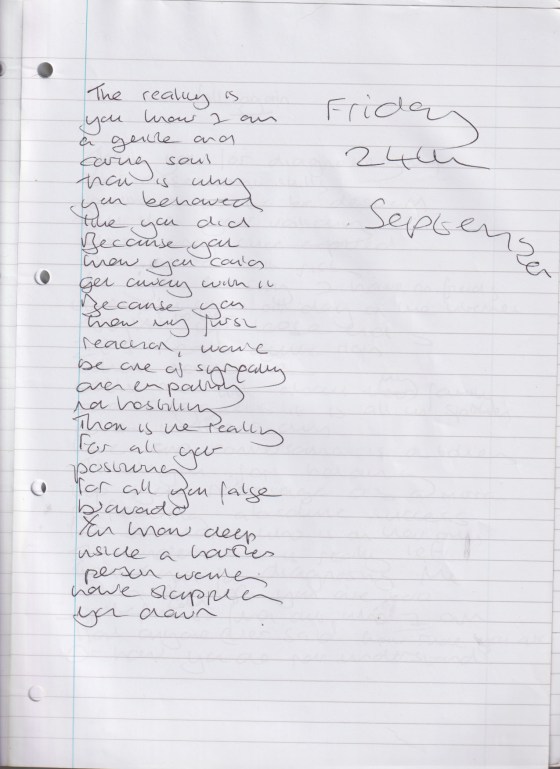 The reality is
you know I am
a gentle and
caring soul
that is why
you behaved
like you did
Because you
know you could
get away with it
Because you
know my first
reaction, would
be one of sympathy
and empathy
not hostility
That is the reality
For all your
posturing
for all your false
bravado
You know deep
inside a harsher
person would
have slapped
you down
Friday
24th
September